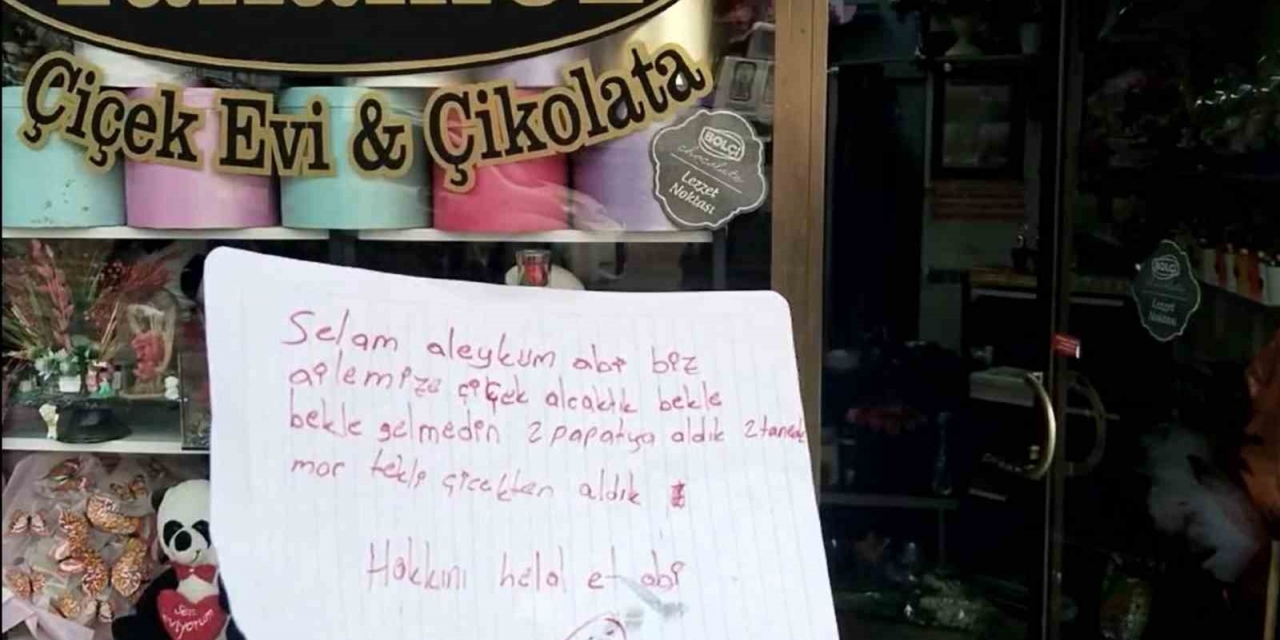 Çiçek Evi & Çikolata
BOLÇİ
chocolate
Lezzet
Noktası
Selam aleykum abi biz
ailemize çiçek alcaktık bekle
bekle gelmedin 2 papatya aldık 2 tanede
mor tekli çicekten aldık
Hakkını helal et abi
BOLÇİ
Lezzet
Noktası
Seni
seviyorum